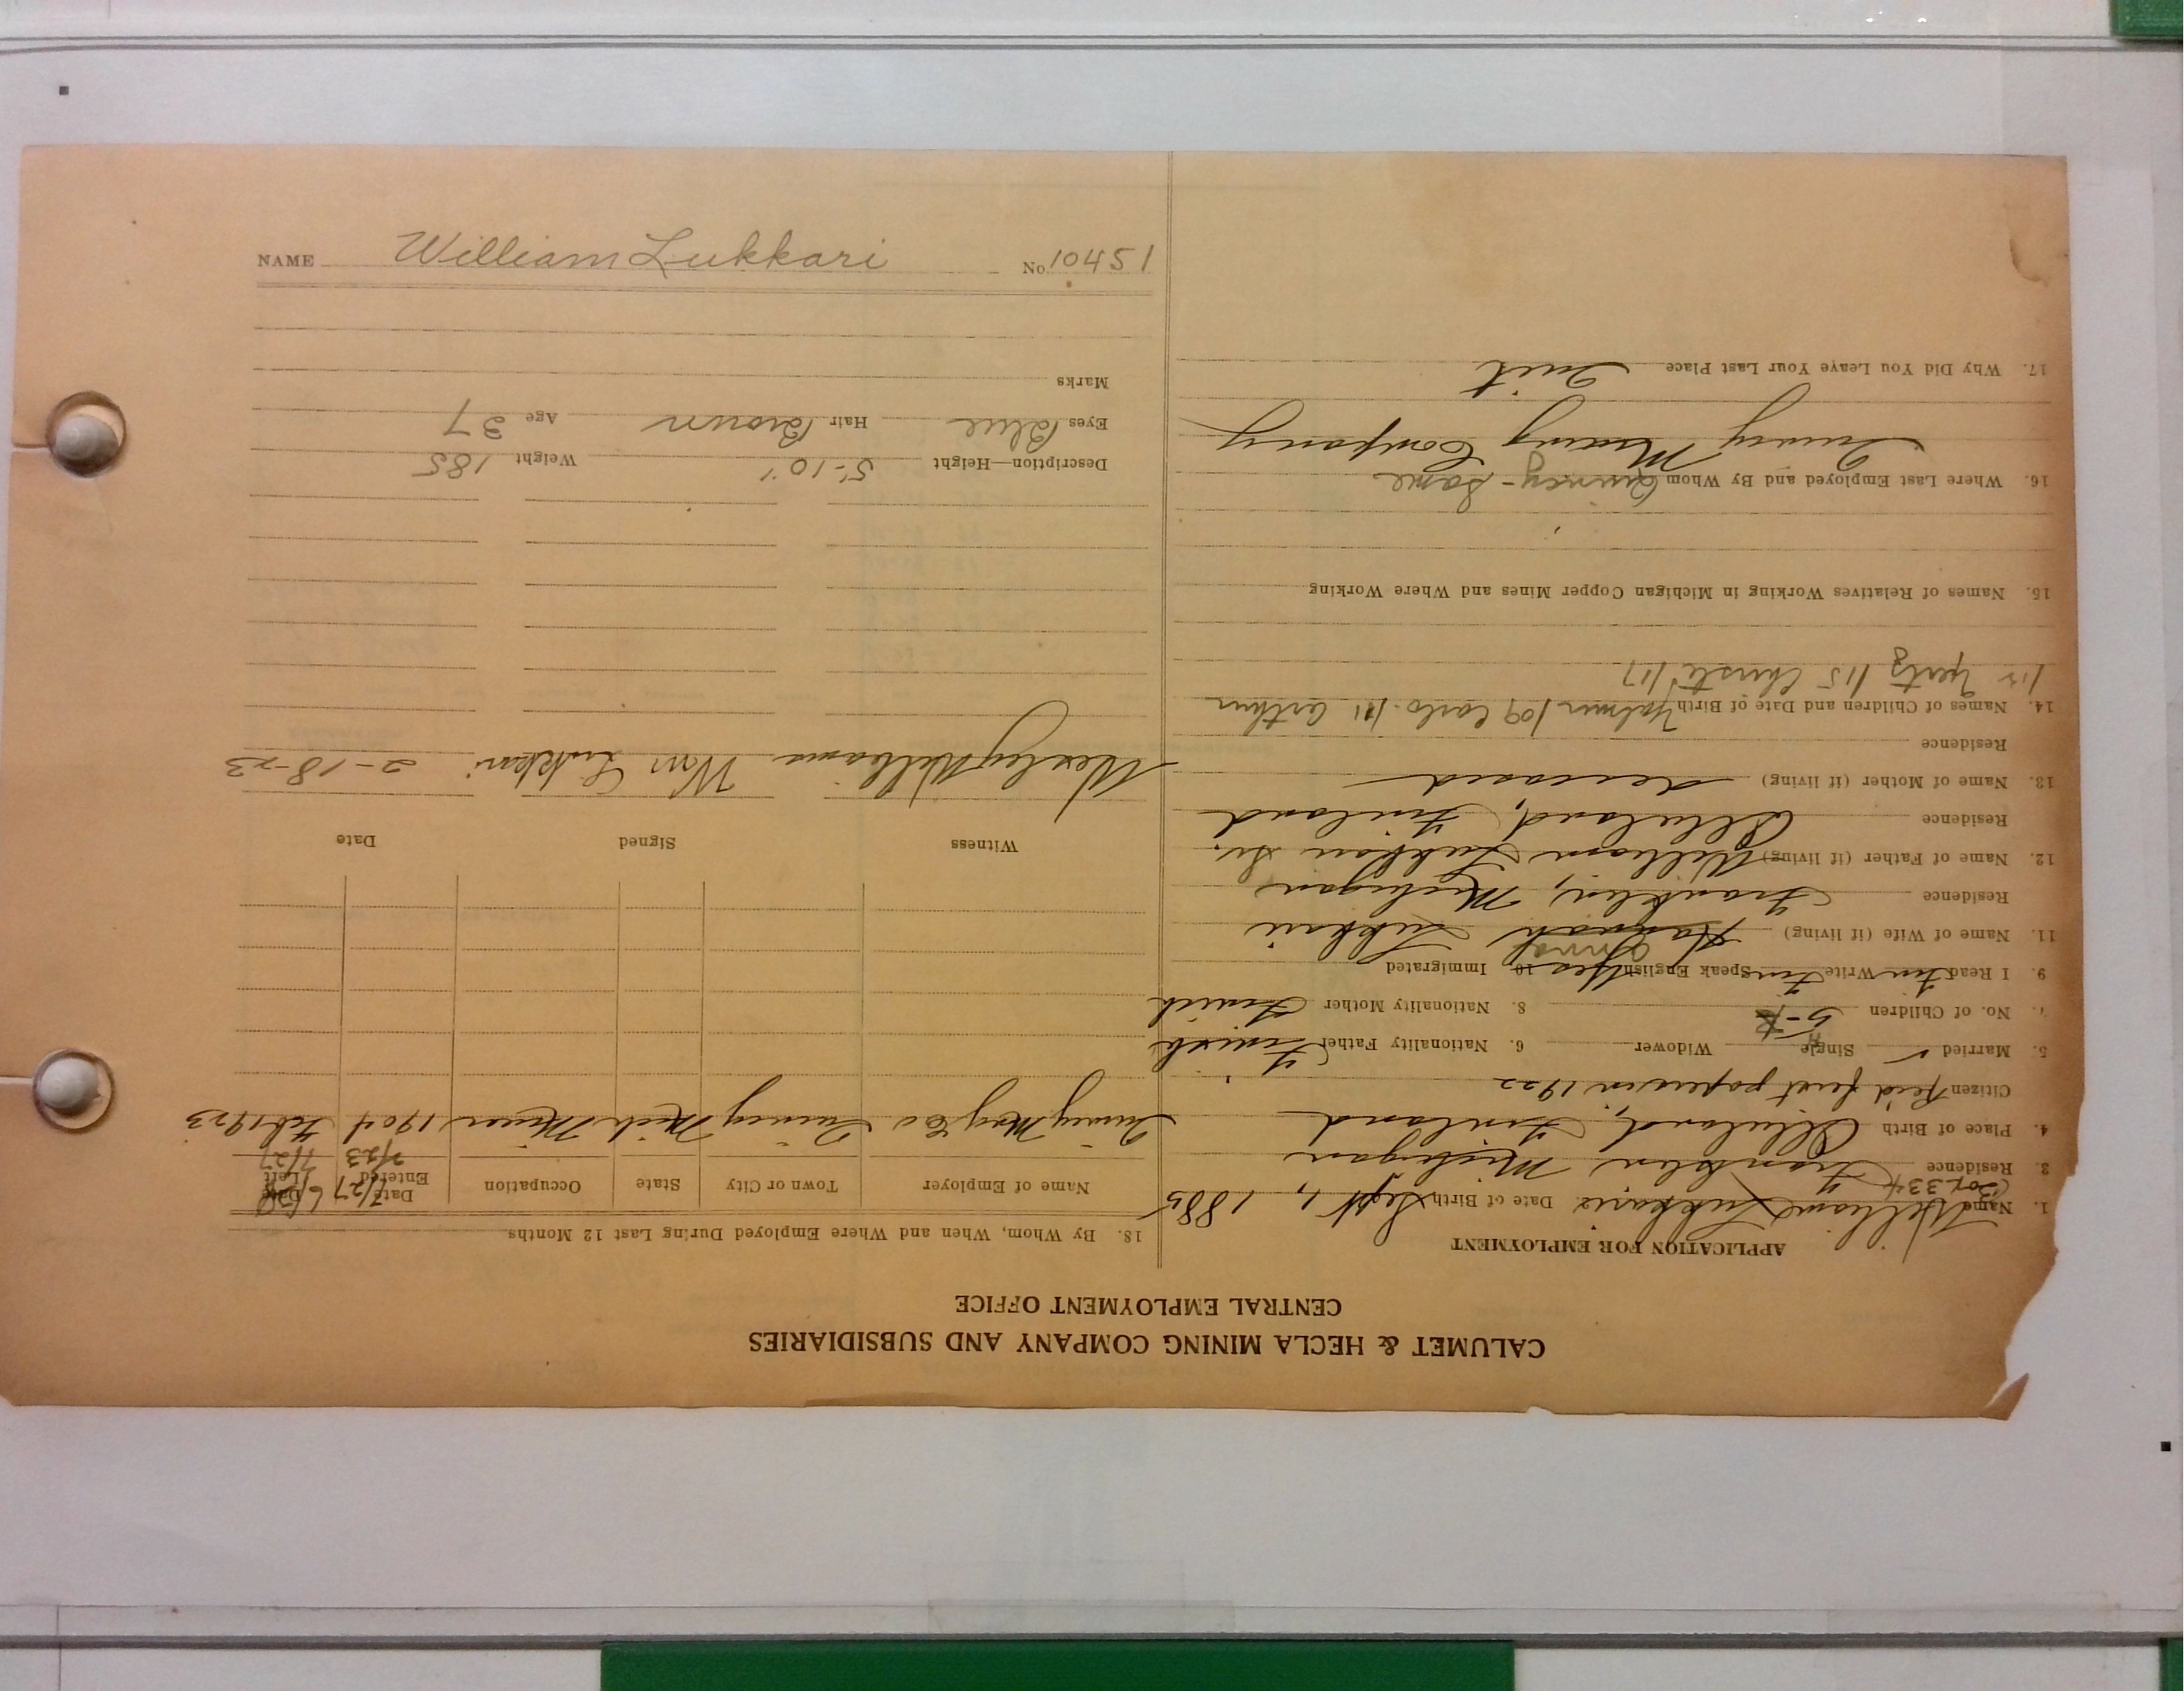 CALUMET & HECLA MINING COMPANY AND SUBSIDIARIES
CENTRAL EMPLOYMENT OFFICE
APPLICATION FOR EMPLOYMENT
1. Name William Lukkari 2. Date of Birth Sept 1, 1885
Box 334
3. Residence Franklin Michigan
4. Place of Birth Finland
Citizen first papers in 1922
5. Married ✓ Single Widower 6. Nationality Father Finish
7. No. of Children 5 8. Nationality Mother Finish
9. I Read Fin Write Fin Speak English Yes 10. Immigrated
Anna
11. Name of Wife (if living) Hannah Lukkari
Residence Franklin, Michigan
12. Name of Father (if living) William Lukkari Sr.
Residence Finland
13. Name of Mother (if living) deceased
Residence
14. Names of Children and Date of Birth /09 Carlo /11 Arthur
/15 /17
15. Names of Relatives Working in Michigan Copper Mines and Where Working
16. Where Last Employed and By Whom Quincy - Same
Quincy Mining Company
17. Why Did You Leave Your Last Place Quit
18. By Whom, When and Where Employed During Last 12 Months
Name of Employer Town or City State Occupation Date Entered Date Left
7/27
2/23 7/27
Quincy Mng Co Quincy Mich Miner 1904 Feb 1923
Witness Signed Date
Wesley Williams Wm Lukkari 2-18-23
Description—Height 5'-10" Weight 185
Eyes Blue Hair Brown Age 37
Marks
NAME William Lukkari No. 10451